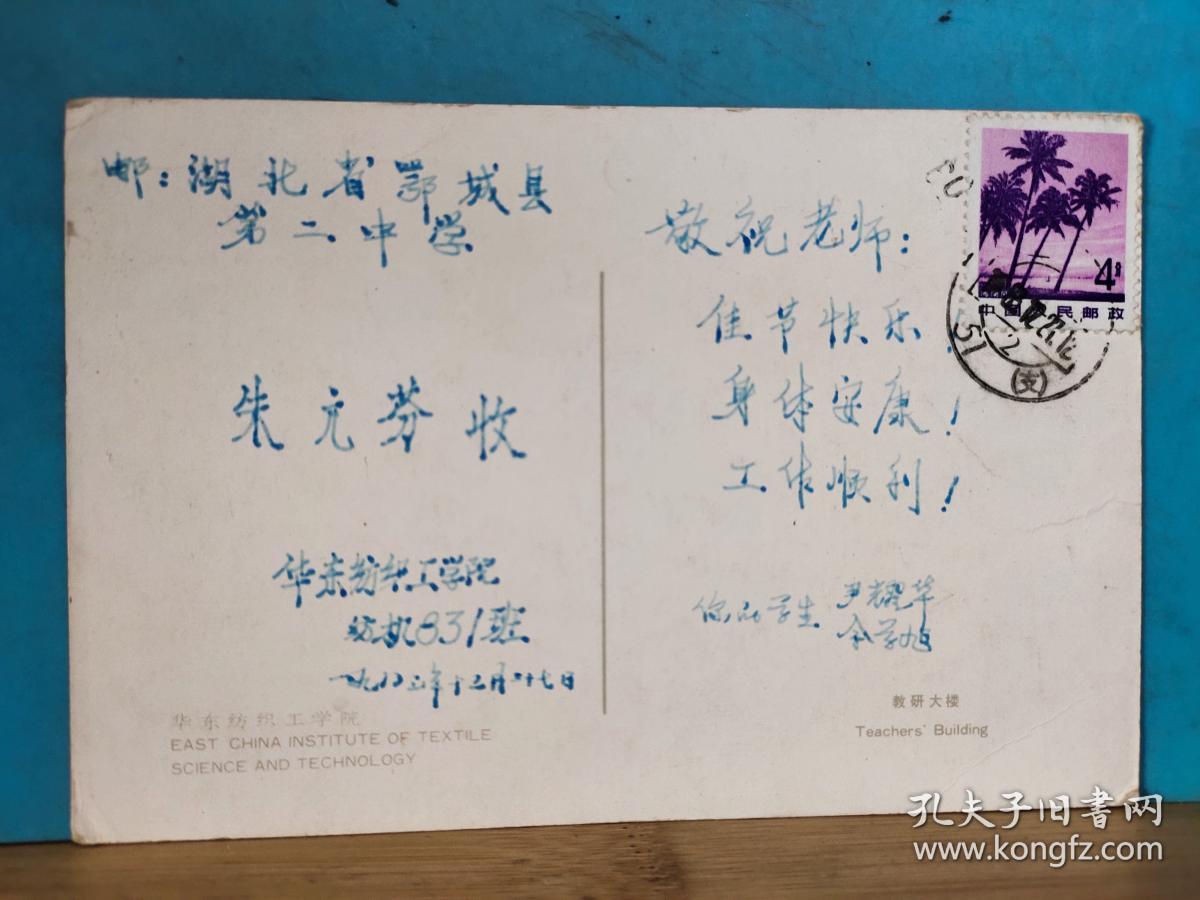 邮:湖北省鄂城县
第二中学
朱元芬 收
华东纺织工学院
纺机831班
一九八三年十二月二十七日
华东纺织工学院
EAST CHINA INSTITUTE OF TEXTILE
SCIENCE AND TECHNOLOGY
敬祝老师:
佳节快乐!
身体安康!
工作顺利!
你的学生 尹耀华
余学旭
教研大楼
Teachers' Building
4分
中国人民邮政
51
(支)
孔夫子旧书网
www.kongfz.com